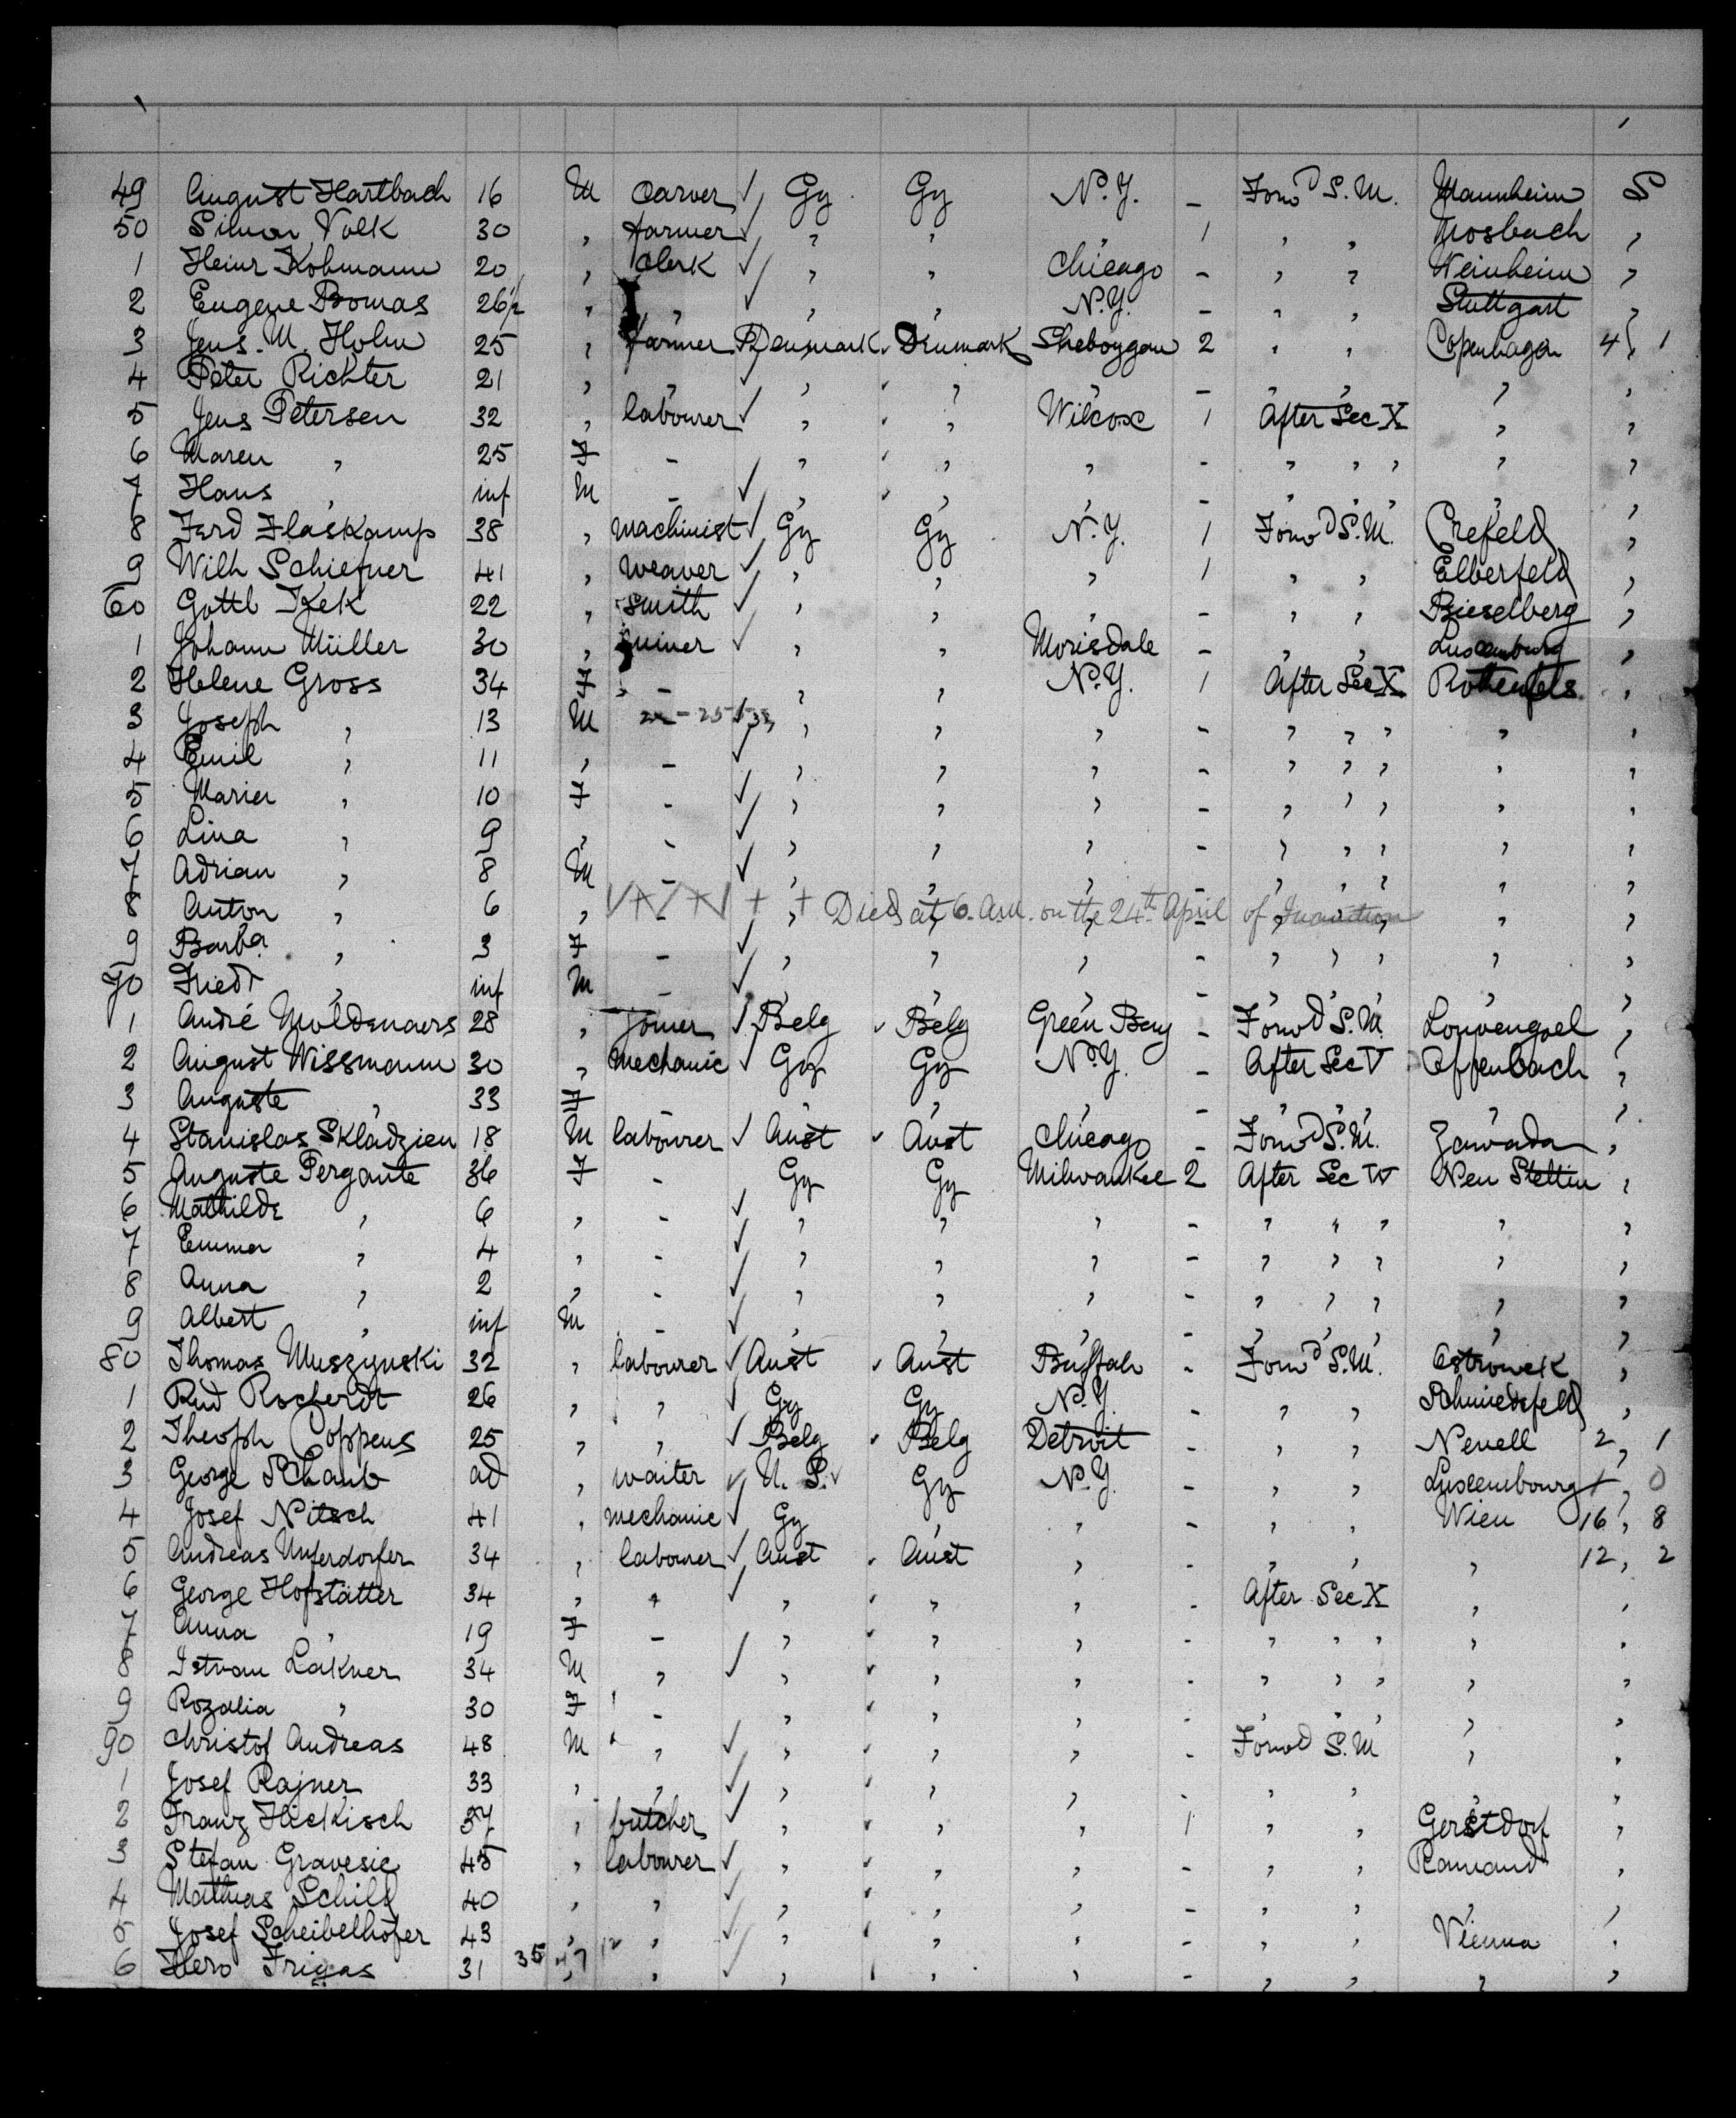 49 August Hartbach 16 M Carver ✓ Gy Gy N.Y. - Forwd S.M. Mannheim S
50 Simon Volk 30 , farmer ✓ , , , 1 , , Mosbach ,
1 Heinr Kohmann 20 , Clerk ✓ , , Chicago - , , Weinheim ,
2 Eugene Bomas 26½ , , ✓ , , N.Y. - , , Stuttgart ,
3 Jens. M. Holm 25 , farmer Denmark Denmark Sheboygan 2 , , Copenhagen 4 , 1
4 Peter Richter 21 , , ✓ , , , - , , , ,
5 Jens Petersen 32 , labourer ✓ , , Wilcox 1 After Sec X , ,
6 Maren , 25 F - , , , - , , , , ,
7 Hans , inf M - ✓ , , , - , , , ,
8 Ferd Flaskamp 38 , machinist ✓ Gy Gy N.Y. 1 Forwd S.M. Crefeld ,
9 Wilh Schiefner 41 , weaver ✓ , , , 1 , , Elberfeld ,
60 Gottl 22 , smith ✓ , , , - , , Bieselberg ,
1 Johann Müller 30 , miner ✓ , , Morisdale - , , Luxemburg ,
2 Helene Gross 34 F - , , N.Y. 1 After Sec X Rothenfels ,
3 Joseph , 13 M , , , - , , , , ,
4 Emil , 11 , - ✓ , , , - , , , , ,
5 Marie , 10 F - ✓ , , , - , , , , ,
6 Lina , 9 , - ✓ , , , - , , , , ,
7 Adrian , 8 M - ✓ , , , - , , , , ,
8 Anton , 6 , - + + Died at 6. a.m. on the 24th April of , ,
9 Barba , 3 F - ✓ , , , - , , , , ,
70 Friedr , inf M - ✓ , , , - , , , , ,
1 André Moldenaers 28 , joiner ✓ Belg ✓ Belg Green Bay - Forwd S.M. Louvengoel ,
2 August Wissmann 30 , mechanic ✓ Gy Gy N.Y. - After Sec V Offenbach ,
3 Auguste , 33 F - , , , - , , , , ,
4 Stanislas Skladzien 18 M labourer ✓ Aust ✓ Aust Chicago - Forwd S.M. Zawada ,
5 Auguste Pergante 36 F - Gy Gy Milwaukee 2 After Sec IV Neu Stettin ,
6 Mathilde , 6 , - ✓ , , , - , , , , ,
7 Emma , 4 , - ✓ , , , - , , , , ,
8 Anna , 2 , - ✓ , , , - , , , , ,
9 Albert , inf M - ✓ , , , - , , , , ,
80 Thomas Muszynski 32 , labourer ✓ Aust ✓ Aust Buffalo - Forwd S.M. Ostrowek ,
1 Rud Rocherdt 26 , , ✓ Gy Gy N.Y. - , , Schmiedefeld ,
2 Theoph Coppens 25 , , ✓ Belg ✓ Belg Detroit - , , Nevell 2 , 1
3 George Schaub ad , waiter ✓ U.S. ✓ Gy N.Y. - , , Luxembourg 1 , 0
4 Josef Nitsch 41 , mechanic ✓ Gy , , - , , Wien 16 , 8
5 Andreas Unferdorfer 34 , labourer ✓ Aust ✓ Aust , - , , , 12 , 2
6 George Hofstätter 34 , , ✓ , , , - After Sec X , ,
7 Anna , 19 F - , , , - , , , , ,
8 Istvan Lakner 34 M , ✓ , , , - , , , , ,
9 Rozalia , 30 F - , , , - , , , , ,
90 Christof Andreas 48 M , ✓ , , , - Forwd S.M , ,
1 Josef Rajner 33 , , ✓ , , , - , , , ,
2 Franz Hickisch 37 , butcher ✓ , , , 1 , , Gerstdorf ,
3 Stefan Gravesic 45 , labourer ✓ , , , - , , Ramand ,
4 Mathias Schild 40 , , ✓ , , , - , , , ,
5 Josef Scheibelhofer 43 , , ✓ , , , - , , Vienna ,
6 Hero Frigas 31 35 , , ✓ , , , - , , , ,